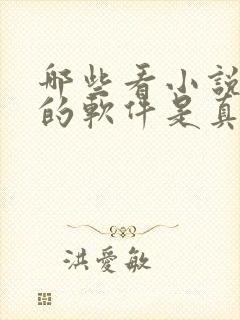 那些看小說
的軟件是真
洪愛敏